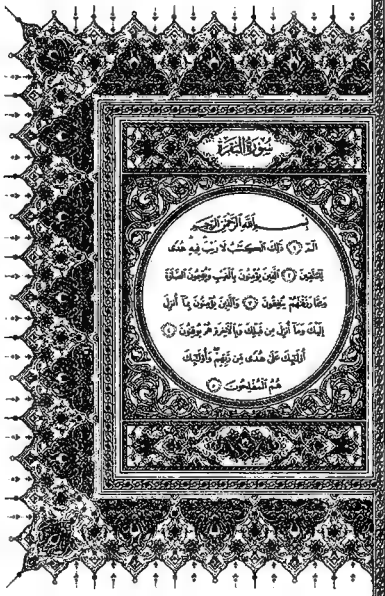 سُورَةُ الْبَقَرَةِ
بِسْمِ اللَّهِ الرَّحْمَٰنِ الرَّحِيمِ
الٓمٓ ۝١ ذَٰلِكَ الْكِتَٰبُ لَا رَيْبَ فِيهِ هُدًى
لِّلْمُتَّقِينَ ۝٢ الَّذِينَ يُؤْمِنُونَ بِالْغَيْبِ وَيُقِيمُونَ الصَّلَوٰةَ
وَمِمَّا رَزَقْنَٰهُمْ يُنفِقُونَ ۝٣ وَالَّذِينَ يُؤْمِنُونَ بِمَآ أُنزِلَ
إِلَيْكَ وَمَآ أُنزِلَ مِن قَبْلِكَ وَبِالْءَاخِرَةِ هُمْ يُوقِنُونَ ۝٤
أُولَٰٓئِكَ عَلَىٰ هُدًى مِّن رَّبِّهِمْ وَأُولَٰٓئِكَ
هُمُ الْمُفْلِحُونَ ۝٥